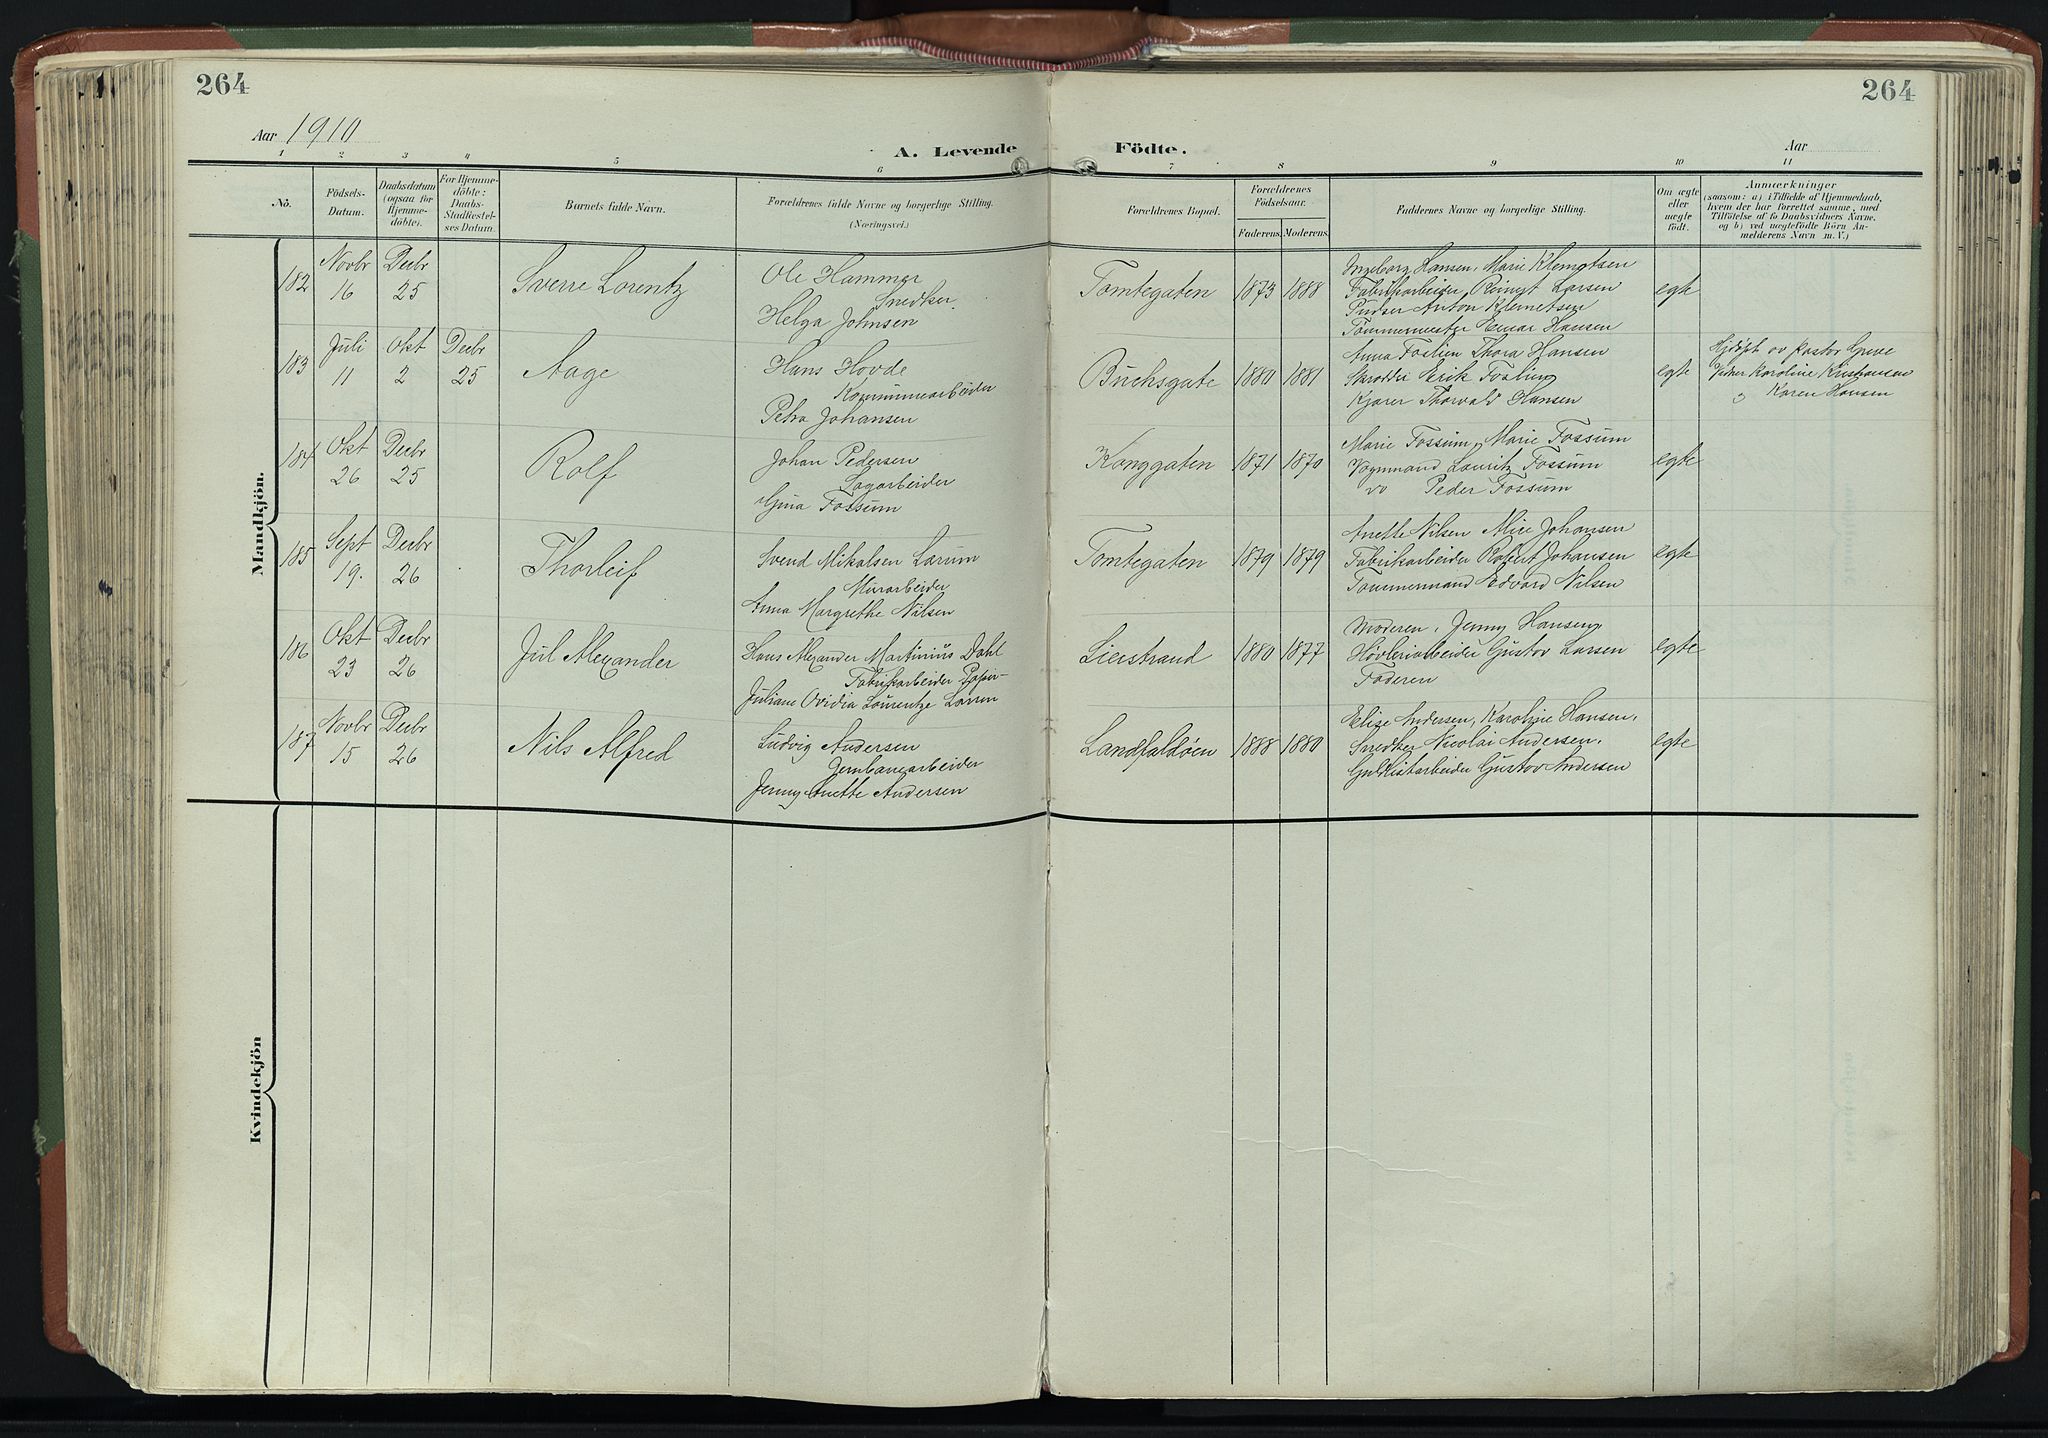 264
264
Aar 1910
A. Levende Födte.
Aar
1 2 3 4 5 6 7 8 9 10 11
No.
Födsels-
Datum.
Daabsdatum
(ogsaa for
Hjemme-
döbte).
For Hjemme-
döbte:
Daabs-
Stadfæstel-
ses Datum.
Barnets fulde Navn.
Forældrenes fulde Navne og borgerlige Stilling.
(Næringsvei.)
Forældrenes Bopæl.
Forældrenes
Födselsaar.
Faderens. Moderens.
Faddernes Navne og borgerlige Stilling.
Om ægte
eller
uægte
födt.
Anmærkninger
(saasom: a) i Tilfælde af Hjemmedaab,
hvem der har forrettet samme, med
Tilföielse af to Daabsvidners Navne.
og b) ved uægtefödte Börn An-
melderens Navn m. V.)
Mandkjön.
182
Novbr
16
Decbr
25
Sverre Lorentz
Ole Hammer
Snedker
Helga Johnsen
Tomtegaten
1873
1888
Ingeborg Hansen, Marie Klemetsen
Fabrikarbeider Reinert Larsen
Pudser Anton Klemetsen
Tømmermester Einar Hansen
egte
183
Juli
11
Okt
2
Decbr
25
Aage
Hans Hovde
Kommunearbeider
Petra Johansen
Buchsgate
1880
1881
Anna Foslien Thora Hansen
Skrædder Erik Foslien
Kjører Thorvald Hansen
egte
Hjdøpt av pastor Greve
Vidner Karoline Kristiansen
" Karen Hansen
184
Okt
26
Decbr
25
Rolf
Johan Pedersen
Sagarbeider
Gina Fossum
Konggaten
1871
1870
Marie Fossum, Marie Fossum
Vognmand Lauritz Fossum
do Peder Fossum
egte
185
Sept
19.
Decbr
26
Thorleif
Svend Mikalsen Larum
Murarbeider
Anna Margrethe Nilsen
Tomtegaten
1879
1879
Anette Nilsen Alice Johansen
Fabrikarbeider Robert Johansen
Tømmermand Edvard Nilsen
egte
186
Okt
23
Decbr
26
Jul Alexander
Hans Alexander Martinius Dahl
Fabrikarbeider Papir-
Juliane Ovidia Laurentze Larsen
Lierstrand
1880
1877
Moderen, Jenny Hansen,
Høvleriarbeider Gustav Larsen
Faderen
egte
187
Novbr
15
Decbr
26
Nils Alfred
Ludvig Andersen
Jernbanearbeider
Jenny Anette Andersen
Landfaldøen
1888
1880
Elise Andersen, Karoline Hansen,
Snedker Nicolai Andersen.
Guldlistarbeider Gustav Andersen
egte
Kvindekjön